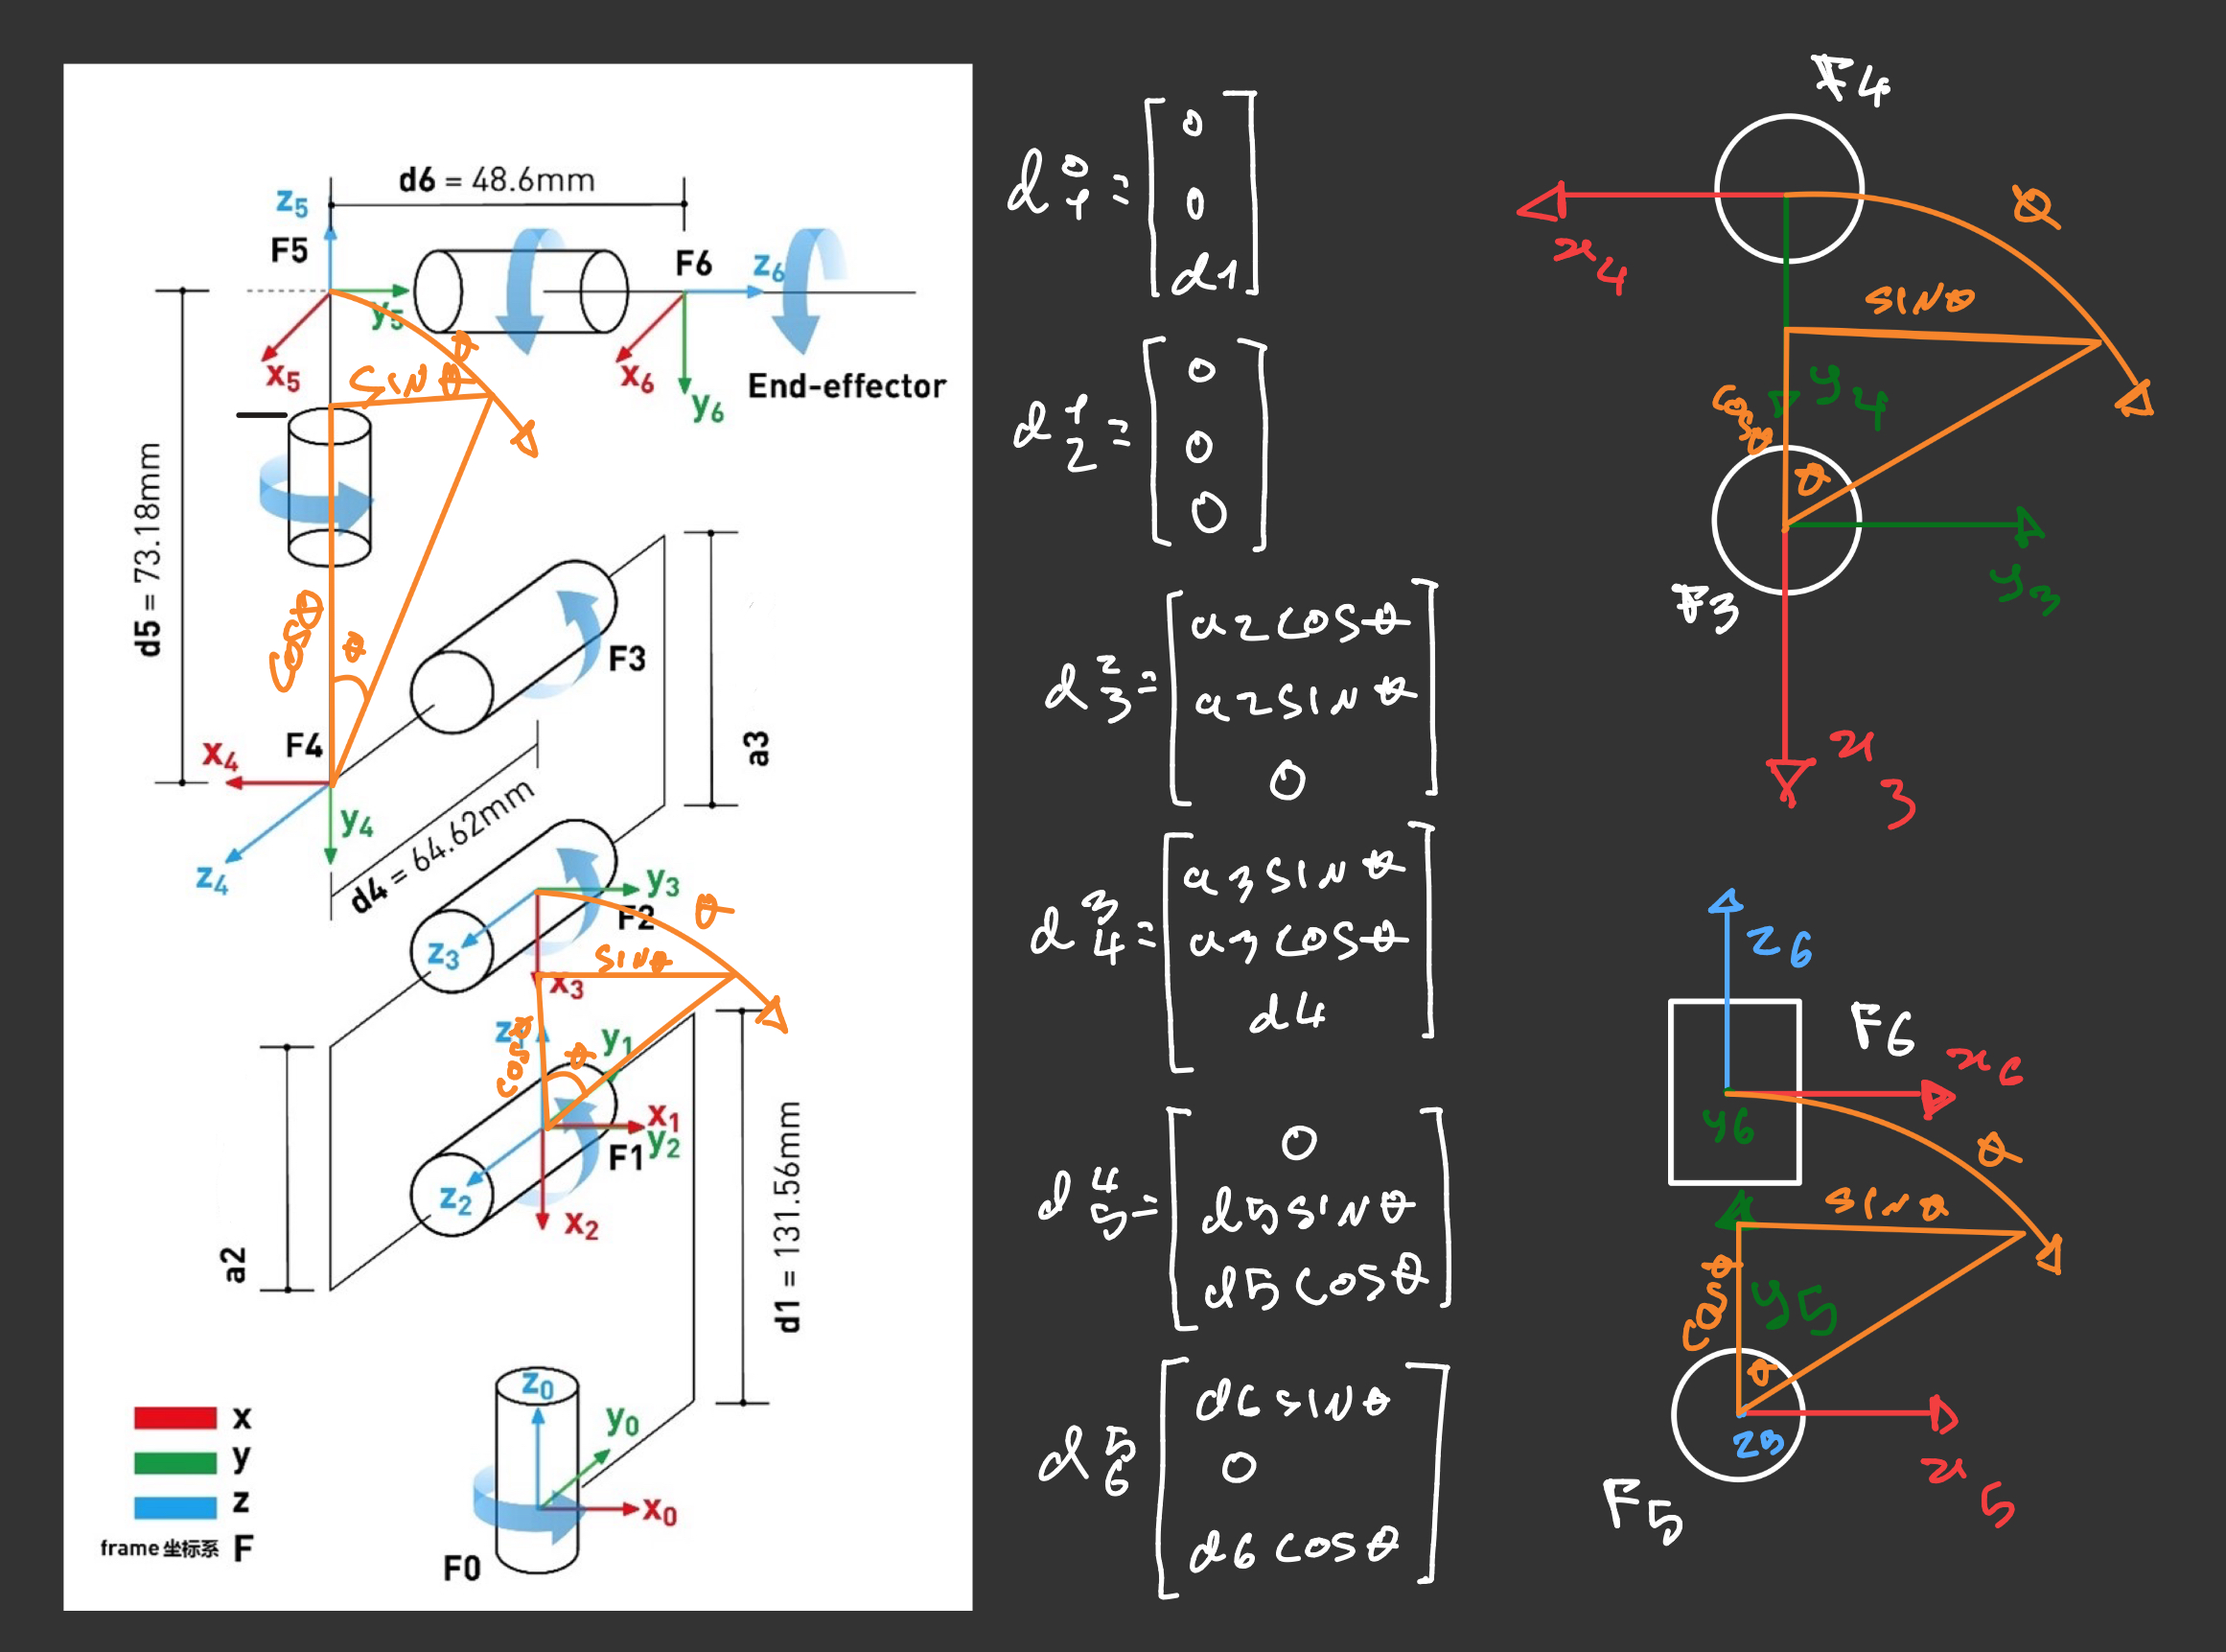 d6 = 48.6mm
z5
F5
F6
z6
y5
x5
x6
End-effector
y6
sinθ
d5 = 73.18mm
cosθ
θ
F3
a3
F4
x4
y4
z4
d4 = 64.62mm
y3
F2
θ
z3
sinθ
x3
z1
cosθ
θ
y1
x1
y2
F1
z2
x2
a2
d1 = 131.56mm
z0
y0
x0
F0
x
y
z
frame 坐标系 F
d 0 1 =
0
0
d1
d 1 2 =
0
0
0
d 2 3 =
a2cosθ
a2sinθ
0
d 3 4 =
a3sinθ
a3cosθ
d4
d 4 5 =
0
d5sinθ
d5cosθ
d 5 6
d6sinθ
0
d6cosθ
F4
θ
x4
sinθ
y4
cosθ
θ
y3
F3
x3
z6
F6
x6
y6
θ
sinθ
cosθ
y5
θ
z5
x5
F5